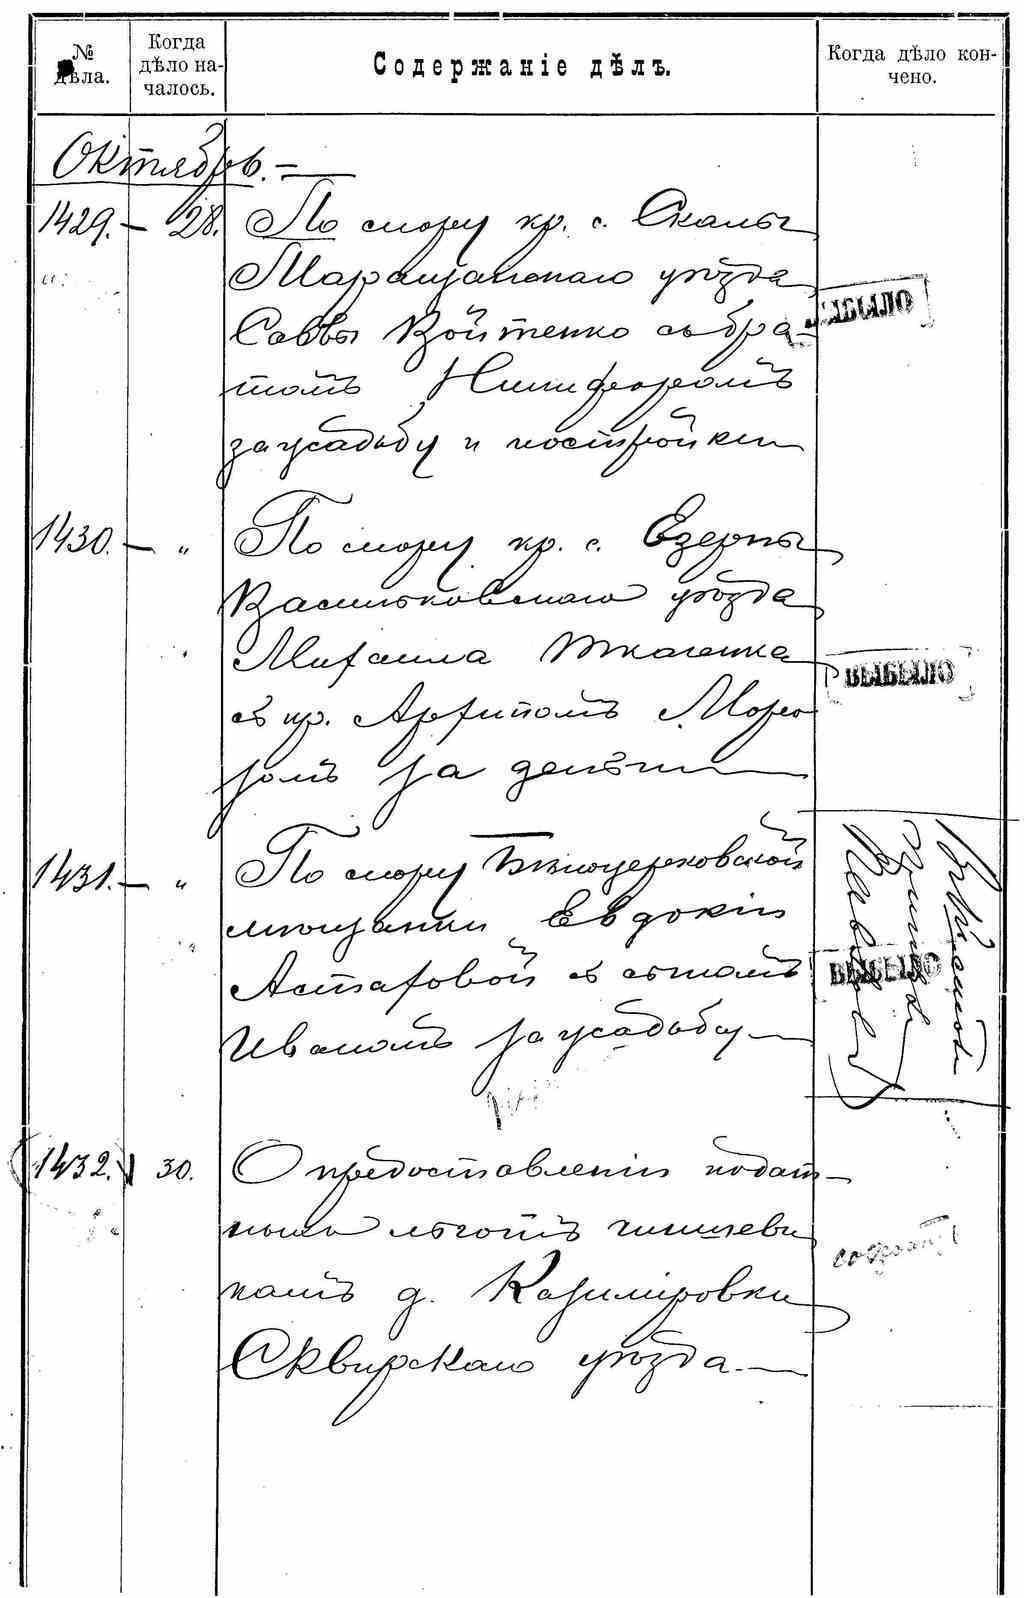 № дѣла.
Когда дѣло на-
чалось.
Содержаніе дѣлъ.
Когда дѣло кон-
чено.
Октябрь. —
1429. — 28. По спору кр. с. Скалы
Таращанскаго уѣзда
Саввы Войтенко съ бра-
томъ Никифоромъ
за усадьбу и постройки
ВЫБЫЛО
1430. — " По спору кр. с. Езерны
Васильковскаго уѣзда
Михаила Ткаченка
съ кр. Архипомъ Моро
зомъ за деньги
ВЫБЫЛО
1431. — " По спору Бѣлоцерковской
мѣщанки Евдокіи
Астафовой съ сыномъ
Иваномъ за усадьбу —
ВЫБЫЛО
1432. 30. О предоставленіи подат-
ныхъ льготъ чиншеви
камъ д. Казиміровки
Сквирскаго уѣзда. —